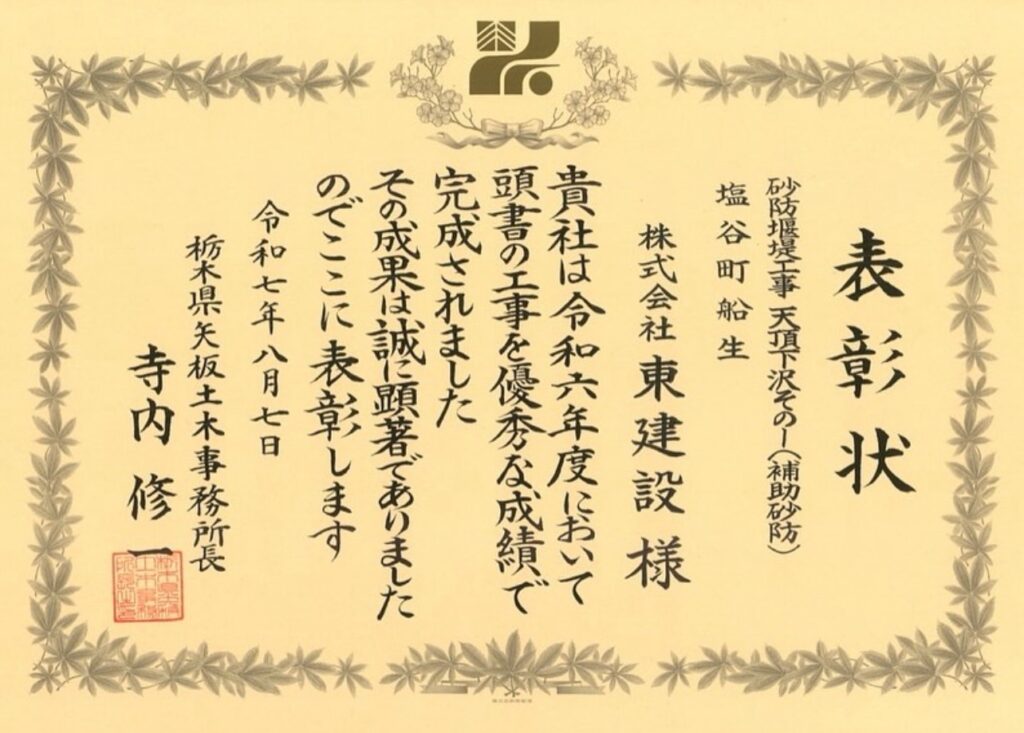 表彰状
砂防堰堤工事 天頂下沢その一(補助砂防)
塩谷町船生
株式会社 東建設 様
貴社は令和六年度において
頭書の工事を優秀な成績で
完成されました
その成果は誠に顕著でありました
のでここに表彰します
令和七年八月七日
栃木県矢板土木事務所長
寺内修一